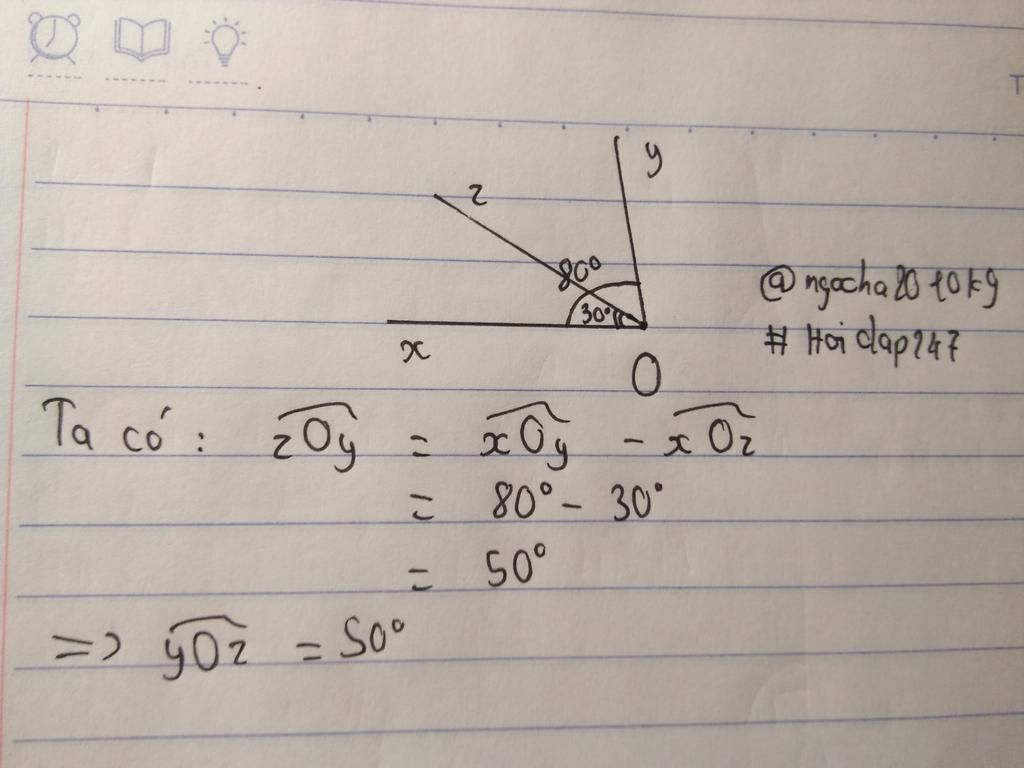 T
y
z
80°
30°
x
O
@ngocha2010kg
# Hoidap247
Ta có: zOy = xOy - xOz
= 80° - 30°
= 50°
=> yOz = 50°